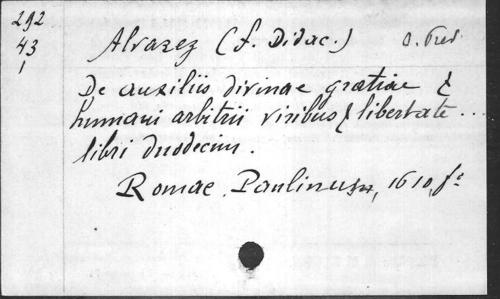 292
43
1
Alvarez (f. Didac.) O. Pred.
De auxiliis divinae gratiae &
humani arbitrii viribus & libertate ...
libri duodecim.
Romae, Paulinus, 1610, fº